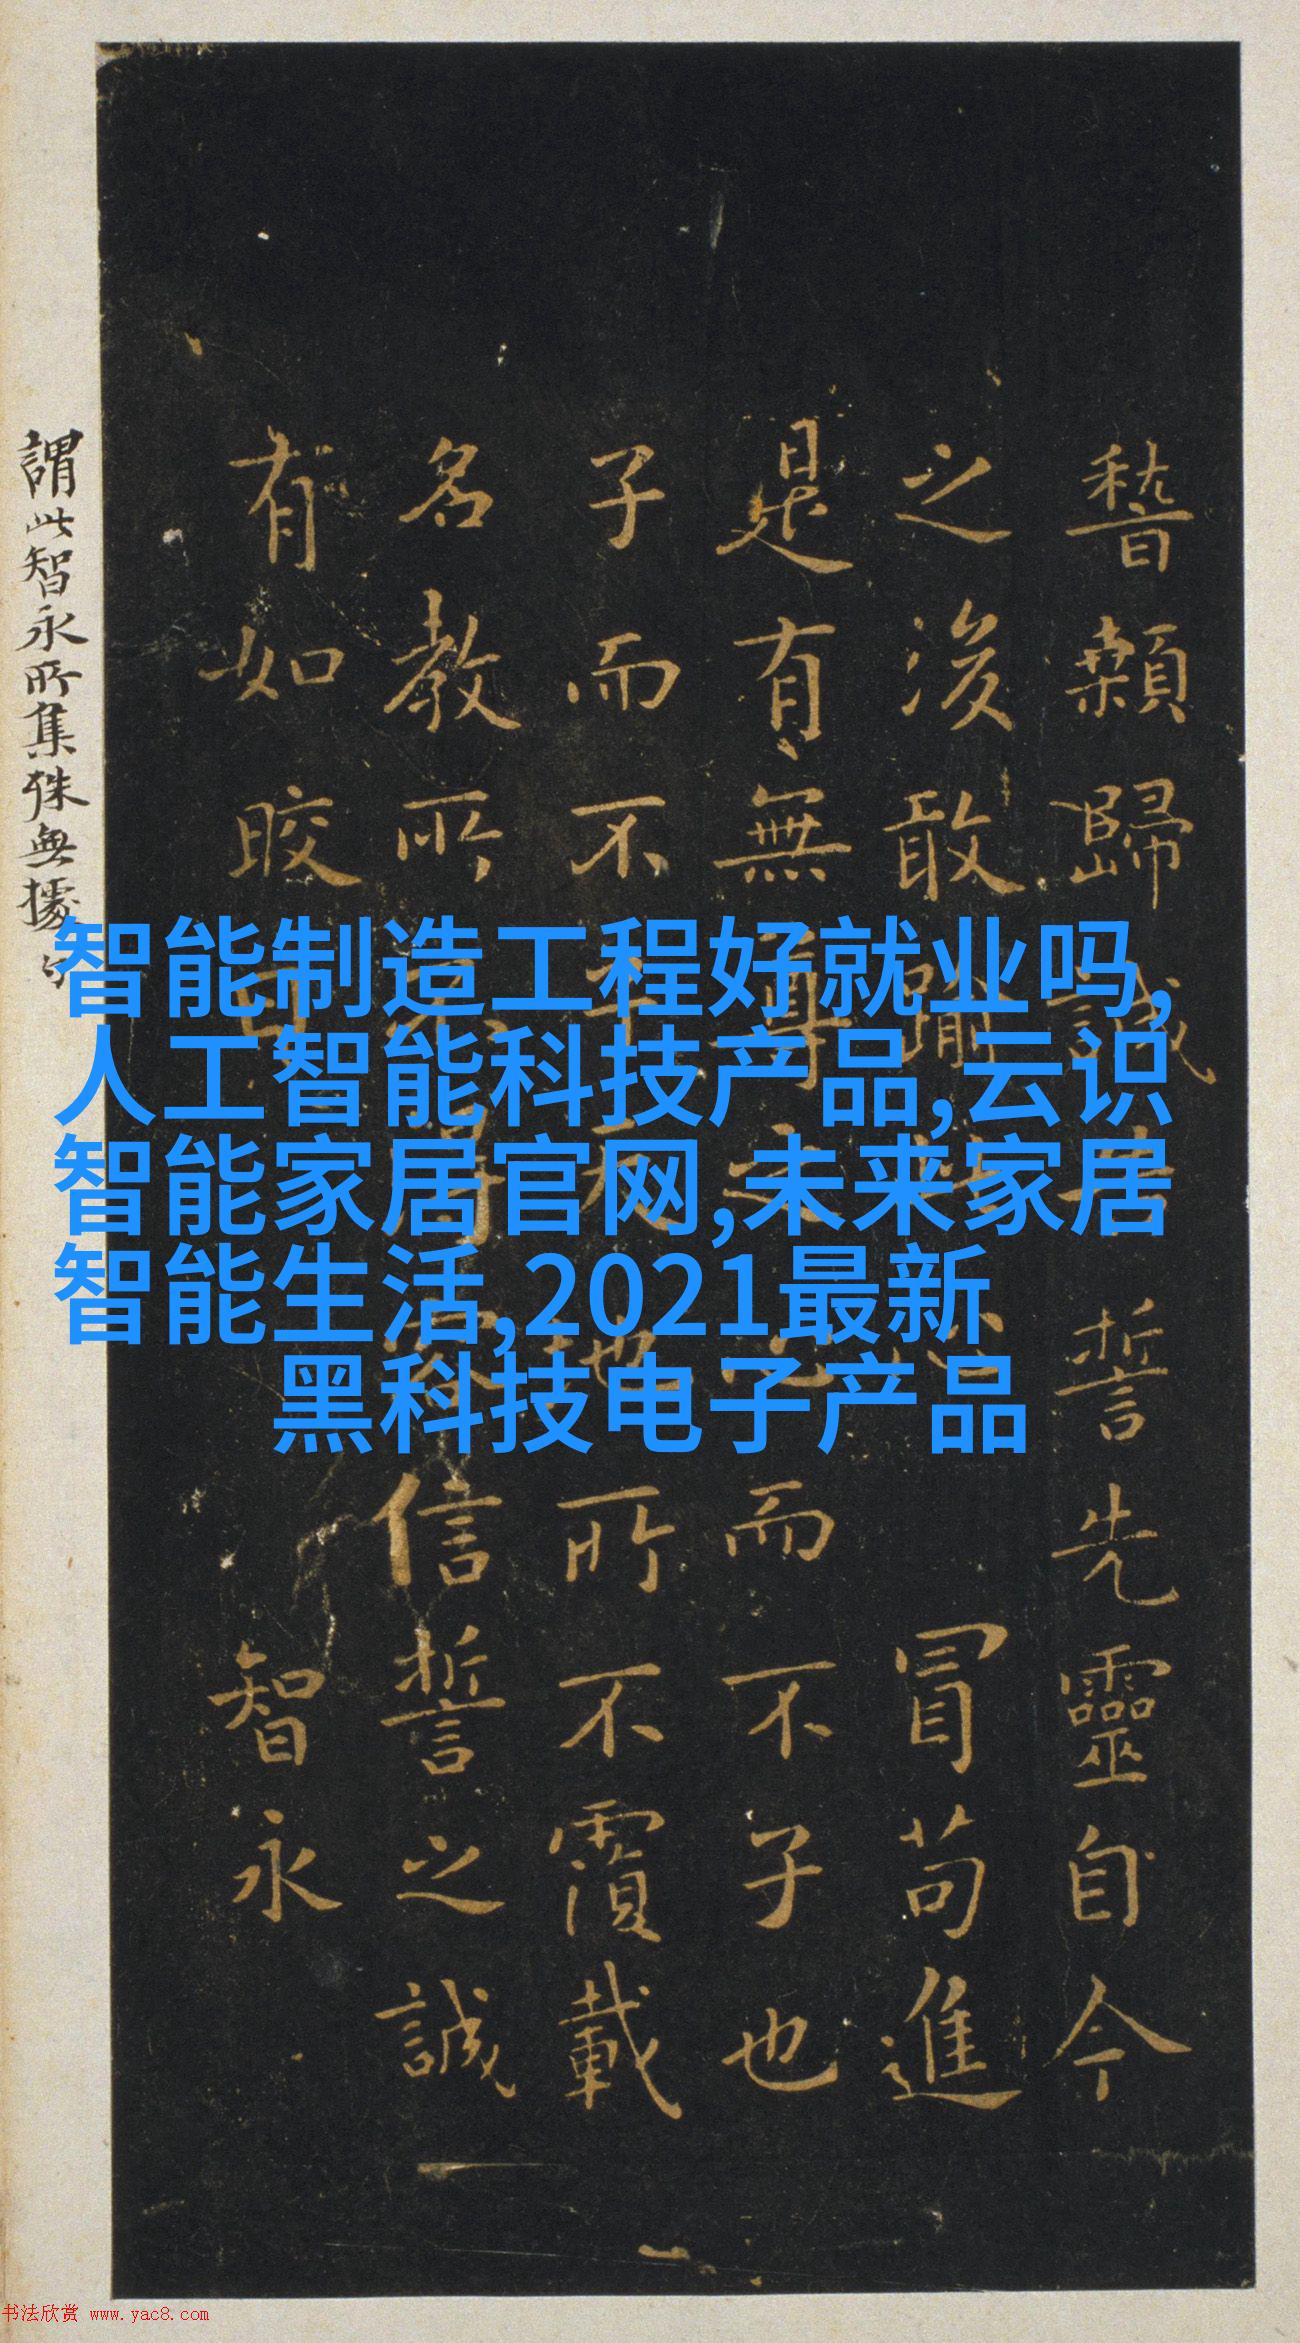 稽顙歸誠告誓先靈自今
之後敢冒苟進
是有無尊之心而不子也
子而不子天地所不覆載
名教所不得容信誓之誠
有如皎日 智永
謂此智永所集殊無據
智能制造工程好就业吗,
人工智能科技产品,云识
智能家居官网,未来家居
智能生活,2021最新
黑科技电子产品
书法欣赏 www.yac8.com